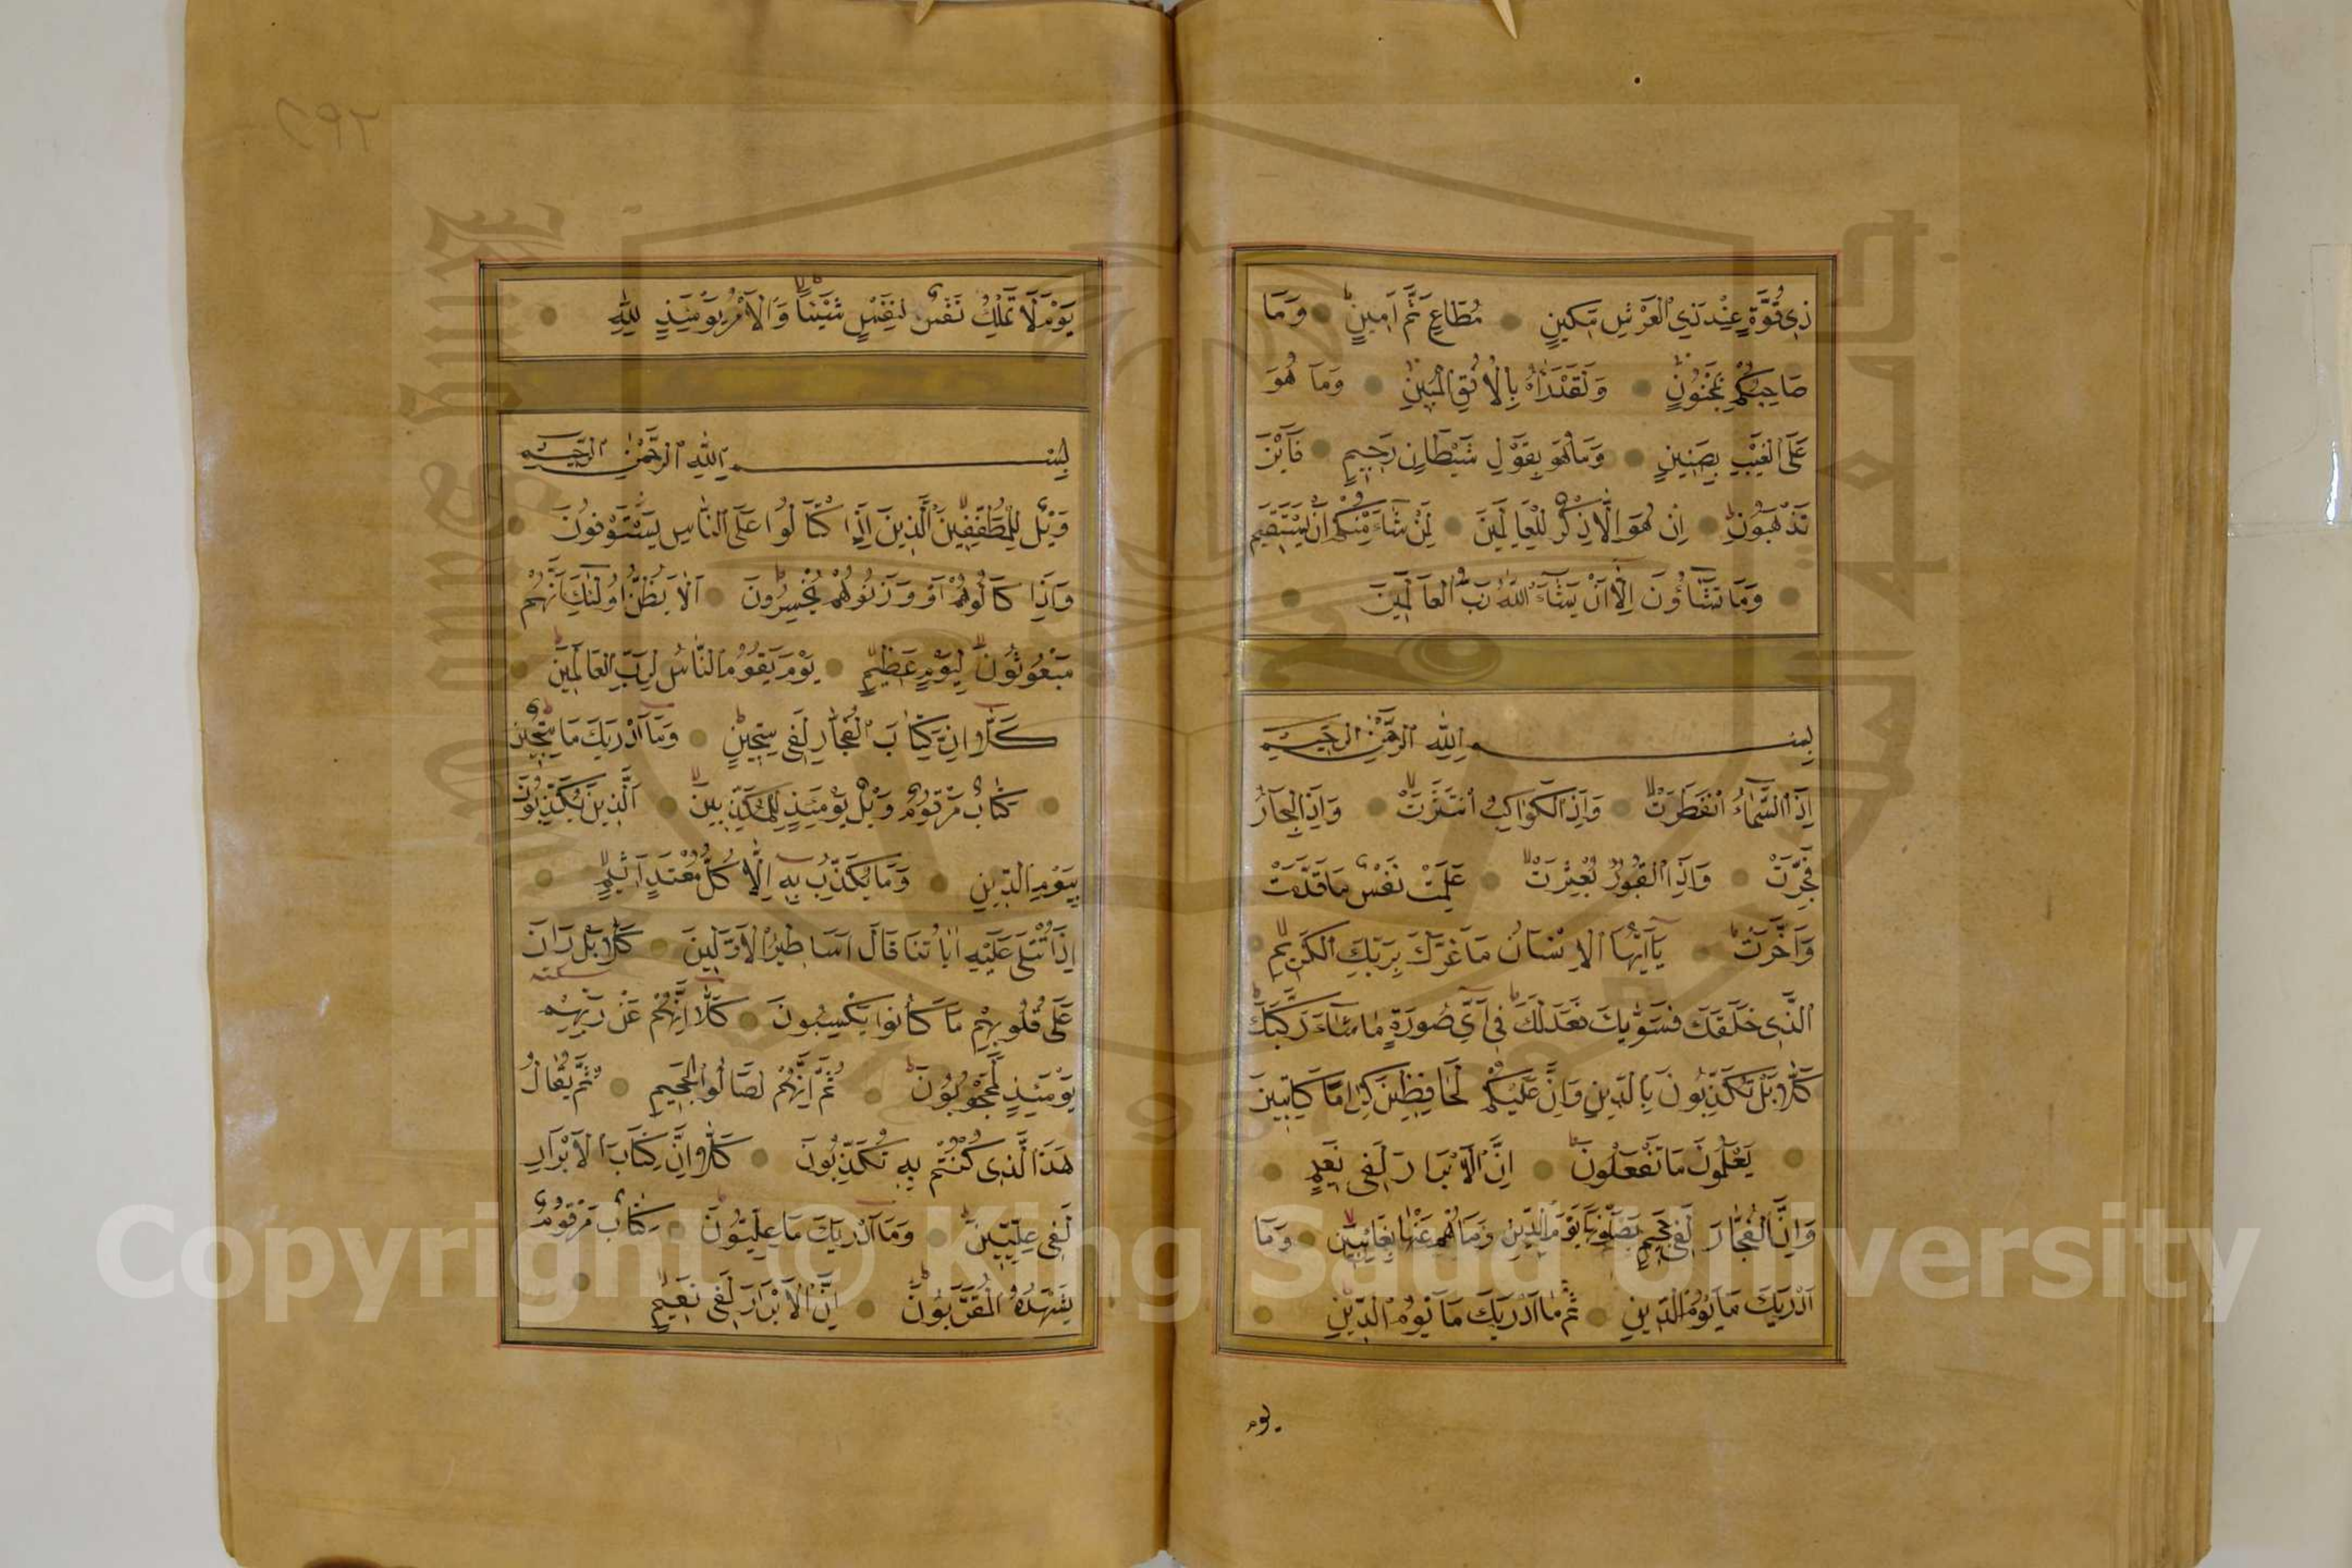 ذِي قُوَّةٍ عِنْدَ ذِي الْعَرْشِ مَكِينٍ مُطَاعٍ ثَمَّ أَمِينٍ وَمَا
صَاحِبُكُمْ بِمَجْنُونٍ وَلَقَدْ رَاٰهُ بِالْاُفُقِ الْمُبِينِ وَمَا هُوَ
عَلَى الْغَيْبِ بِضَنِينٍ وَمَا هُوَ بِقَوْلِ شَيْطَانٍ رَجِيمٍ فَاَيْنَ
تَذْهَبُونَ اِنْ هُوَ اِلَّا ذِكْرٌ لِلْعَالَمِينَ لِمَنْ شَاءَ مِنْكُمْ اَنْ يَسْتَقِيمَ
وَمَا تَشَاؤُنَ اِلَّا اَنْ يَشَاءَ اللّٰهُ رَبُّ الْعَالَمِينَ
بِسْمِ اللّٰهِ الرَّحْمٰنِ الرَّحِيمِ
اِذَا السَّمَاءُ انْفَطَرَتْ وَاِذَا الْكَوَاكِبُ انْتَثَرَتْ وَاِذَا الْبِحَارُ
فُجِّرَتْ وَاِذَا الْقُبُورُ بُعْثِرَتْ عَلِمَتْ نَفْسٌ مَا قَدَّمَتْ
وَاَخَّرَتْ يَا اَيُّهَا الْاِنْسَانُ مَا غَرَّكَ بِرَبِّكَ الْكَرِيمِ
الَّذِي خَلَقَكَ فَسَوّٰيكَ فَعَدَلَكَ فِي اَيِّ صُورَةٍ مَا شَاءَ رَكَّبَكَ
كَلَّا بَلْ تُكَذِّبُونَ بِالدِّينِ وَاِنَّ عَلَيْكُمْ لَحَافِظِينَ كِرَامًا كَاتِبِينَ
يَعْلَمُونَ مَا تَفْعَلُونَ اِنَّ الْاَبْرَارَ لَفِي نَعِيمٍ
وَاِنَّ الْفُجَّارَ لَفِي جَحِيمٍ يَصْلَوْنَهَا يَوْمَ الدِّينِ وَمَا هُمْ عَنْهَا بِغَائِبِينَ وَمَا
اَدْرٰيكَ مَا يَوْمُ الدِّينِ ثُمَّ مَا اَدْرٰيكَ مَا يَوْمُ الدِّينِ
يوم
يَوْمَ لَا تَمْلِكُ نَفْسٌ لِنَفْسٍ شَيْئًا وَالْاَمْرُ يَوْمَئِذٍ لِلّٰهِ
بِسْمِ اللّٰهِ الرَّحْمٰنِ الرَّحِيمِ
وَيْلٌ لِلْمُطَفِّفِينَ الَّذِينَ اِذَا كْتَالُوا عَلَى النَّاسِ يَسْتَوْفُونَ
وَاِذَا كَالُوهُمْ اَوْ وَزَنُوهُمْ يُخْسِرُونَ اَلَا يَظُنُّ اُولٰئِكَ اَنَّهُمْ
مَبْعُوثُونَ لِيَوْمٍ عَظِيمٍ يَوْمَ يَقُومُ النَّاسُ لِرَبِّ الْعَالَمِينَ
كَلَّا اِنَّ كِتَابَ الْفُجَّارِ لَفِي سِجِّينٍ وَمَا اَدْرٰيكَ مَا سِجِّينٌ
كِتَابٌ مَرْقُومٌ وَيْلٌ يَوْمَئِذٍ لِلْمُكَذِّبِينَ اَلَّذِينَ يُكَذِّبُونَ
بِيَوْمِ الدِّينِ وَمَا يُكَذِّبُ بِهِ اِلَّا كُلُّ مُعْتَدٍ اَثِيمٍ
اِذَا تُتْلَى عَلَيْهِ اٰيَاتُنَا قَالَ اَسَاطِيرُ الْاَوَّلِينَ كَلَّا بَلْ رَانَ
سكته
عَلَى قُلُوبِهِمْ مَا كَانُوا يَكْسِبُونَ كَلَّا اِنَّهُمْ عَنْ رَبِّهِمْ
يَوْمَئِذٍ لَمَحْجُوبُونَ ثُمَّ اِنَّهُمْ لَصَالُوا الْجَحِيمِ ثُمَّ يُقَالُ
هٰذَا الَّذِي كُنْتُمْ بِهِ تُكَذِّبُونَ كَلَّا اِنَّ كِتَابَ الْاَبْرَارِ
لَفِي عِلِّيِّينَ وَمَا اَدْرٰيكَ مَا عِلِّيُّونَ كِتَابٌ مَرْقُومٌ
يَشْهَدُهُ الْمُقَرَّبُونَ اِنَّ الْاَبْرَارَ لَفِي نَعِيمٍ
Copyright © King Saud University